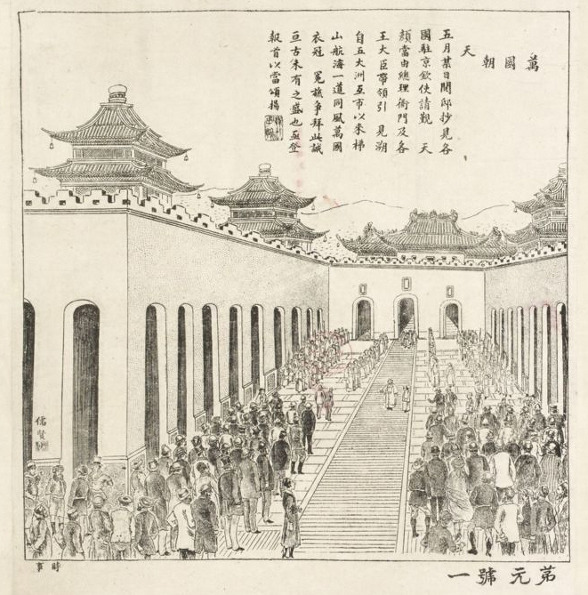 萬國朝天
五月某日閱邸抄見各
國駐京欽使請覲 天
顏當由總理衙門及各
王大臣帶領引 見溯
自五大洲互市以來梯
山航海一道同風萬國
衣冠 冕旒爭拜此誠
亘古未有之盛也亟登
報首以當頌揚
儒賢
時事
苐元號一